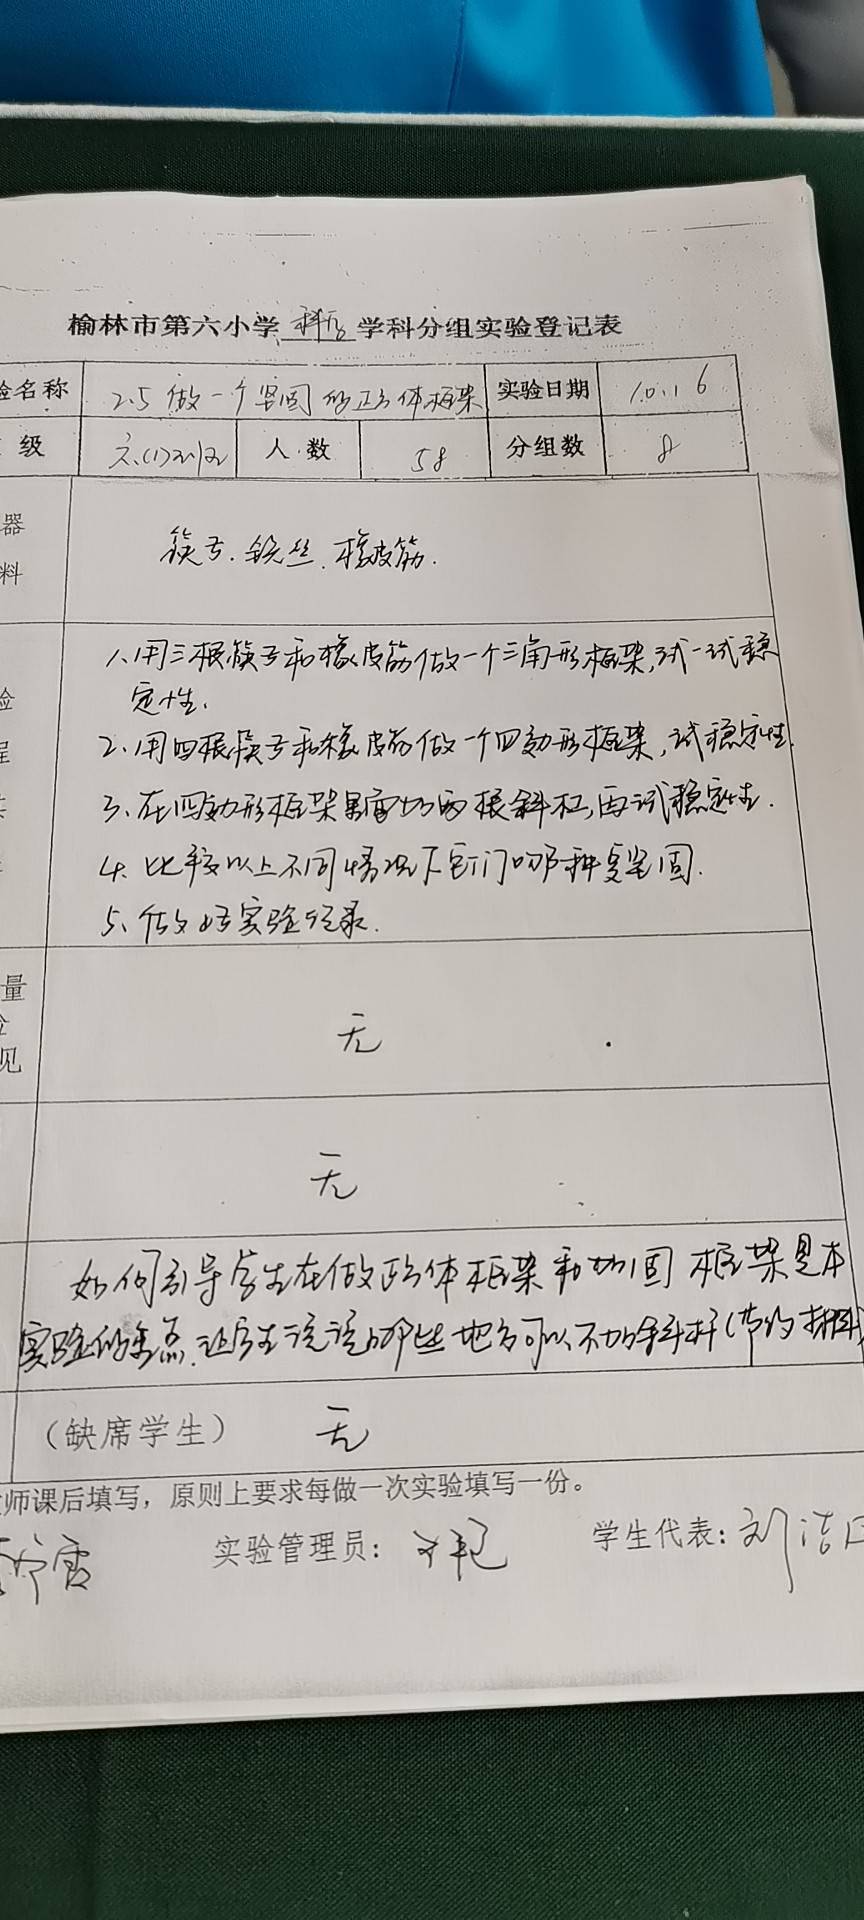 榆林市第六小学 科学 学科分组实验登记表
验名称 2.5 做一个坚固的正方体框架 实验日期 10.16
级 六.(1) 人数 58 分组数 8
器
料
筷子.铁丝.橡皮筋.
1、用三根筷子和橡皮筋做一个三角形框架,试一试稳
定性.
2、用四根筷子和橡皮筋做一个四边形框架,试稳定性.
3、在四边形框架里面加两根斜杠,再试稳定性.
4、比较以上不同情况下它们哪种更坚固.
5、做好实验记录.
验
程
量
检
见
无
无
如何引导学生在做正方体框架和加固框架是本
实验的重点.让学生说说哪些地方可以不加斜杆(节约材料)
(缺席学生) 无
师课后填写,原则上要求每做一次实验填写一份。
实验管理员: 学生代表:刘洁